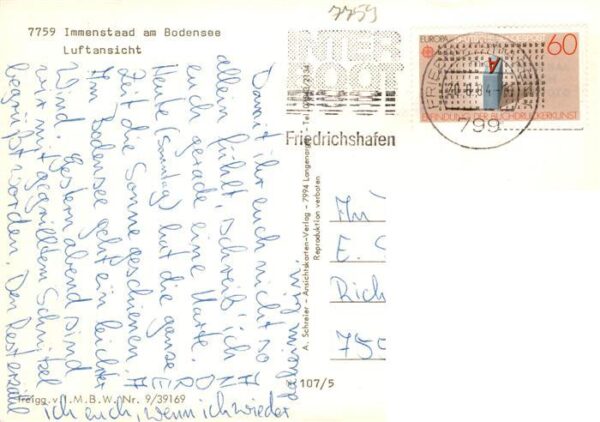 7759
7759 Immenstaad am Bodensee
Luftansicht
INTER
BOOT
Friedrichshafen
EUROPA
60
ERFINDUNG DER BUCHDRUCKERKUNST
799
Damit ihr euch nicht so
allein fühlt, schreib' ich
euch gerade eine Karte.
Heute (Sonntag) hat die ganze
Zeit die Sonne geschienen.
Am Bodensee geht ein leichter
Wind. Gestern abend sind
wir mit gegrilltem Schnitzel
begrüßt worden. Den Rest erzähl
ich euch, wenn ich wieder
A. Schreier - Ansichtskarten-Verlag - 7994 Langenarg
Reproduktion verboten
An
E.
Rich
75
107/5
freigg. v. I.M.B.W. Nr. 9/39169